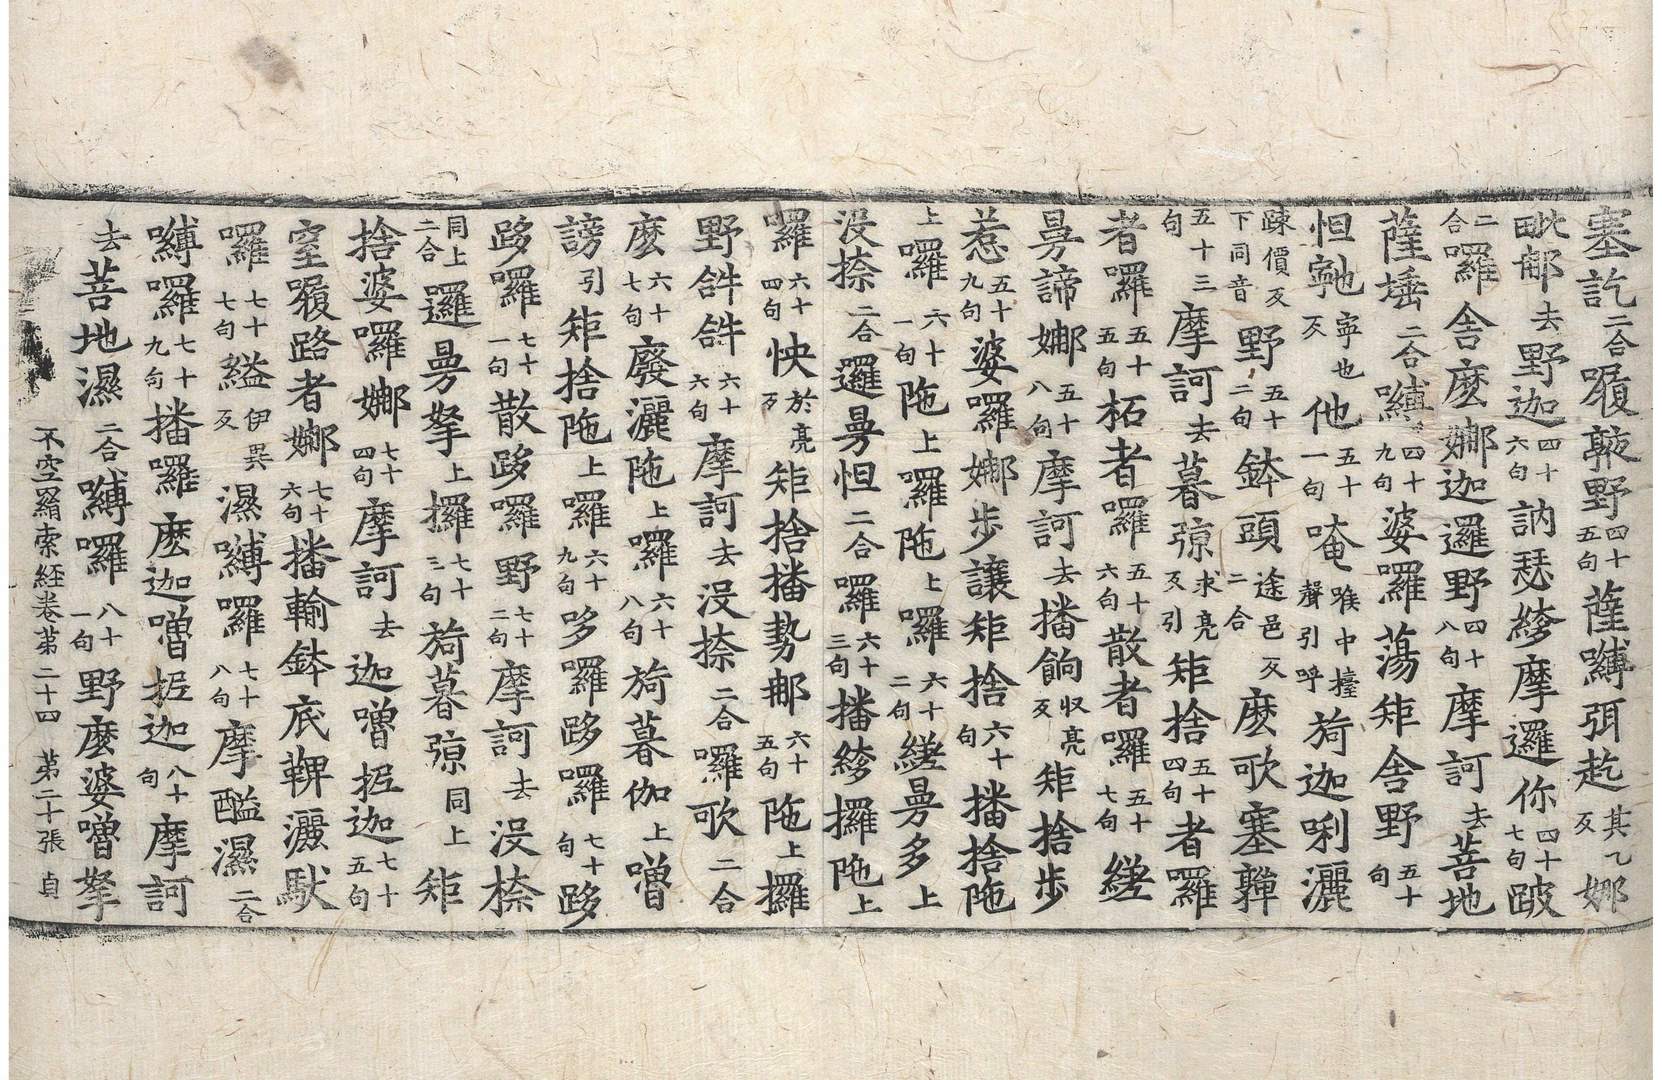 塞訖二合㘑𭌆野四十五句薩嚩弭趁其乙反娜
毗郁去野迦四十六句訥瑟絝摩邏你四十七句跛
二合囉舍麽娜迦邏野四十八句摩訶去菩地
薩埵二合嚩四十九句婆囉蕩矩舍野五十句
怛寧也反他五十一句唵喉中擡聲引呼旖迦唎灑
踈價反下同音野五十二句鉢頭途邑反二合麽歌塞亸
五十三句摩訶去暮弶求亮反引矩捨五十四句者囉
者囉五十五句柘者囉五十六句散者囉五十七句縒
曼諦娜五十八句摩訶去播餉收亮反矩捨步
惹五十九句婆囉娜步讓矩捨六十句播捨陁
上囉六十一句陁上囉陁上囉六十二句縒曼多上
没捺二合邏曼怛二合囉六十三句播絝攞陁上
囉六十四句怏於亮反矩捨播勢郁六十五句陁上攞
野𤙖𤙖六十六句摩訶去没捺二合囉歌二合
麽六十七句廢灑陁上囉六十八句旖暮伽上嚕
謗引矩捨陁上囉六十九句哆囉跢囉七十句跢
跢囉七十一句散跢囉野七十二句摩訶去没捺
同上二合邏曼拏上攞七十三句旖暮弶同上矩
捨婆囉娜七十四句摩訶去迦嚕抳迦七十五句
窒㘑路者娜七十六句播輸鉢底鞞灑馱
囉七十七句縊伊異反濕嚩囉七十八句摩醯濕二合
嚩囉七十九句播囉麽迦嚕抳迦八十句摩訶
去菩地濕二合嚩囉八十一句野麽婆嚕拏
不空羂索經卷第二十四　第二十張　貞